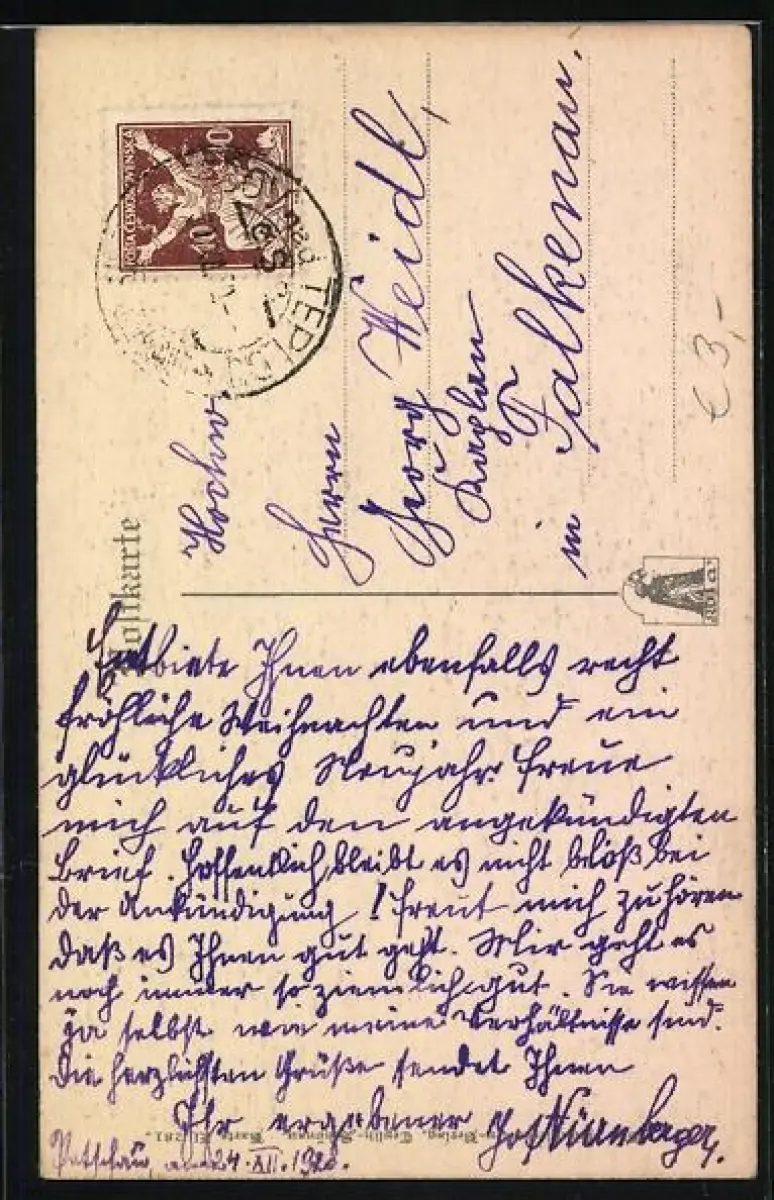 Postkarte
POŠTA ČESKOSLOVENSKÁ
40
40
TEPL
Herrn
Georg Weidl,
Kaplan
in Falkenau.
€ 3,-
Entbiete Ihnen ebenfalls recht
fröhliche Weihnachten und ein
glückliches Neujahr. Freue
mich auf den angekündigten
Brief. Hoffentlich bleibt es nicht bloß bei
der Ankündigung! Freut mich zu hören
daß es Ihnen gut geht. Mir geht es
noch immer so ziemlich gut. Sie wissen
ja selbst wie meine Verhältnisse sind.
Die herzlichsten Grüße sendet Ihnen
Ihr ergebener Jos. Nürnberger.
Petschau, am 24. XII. 192